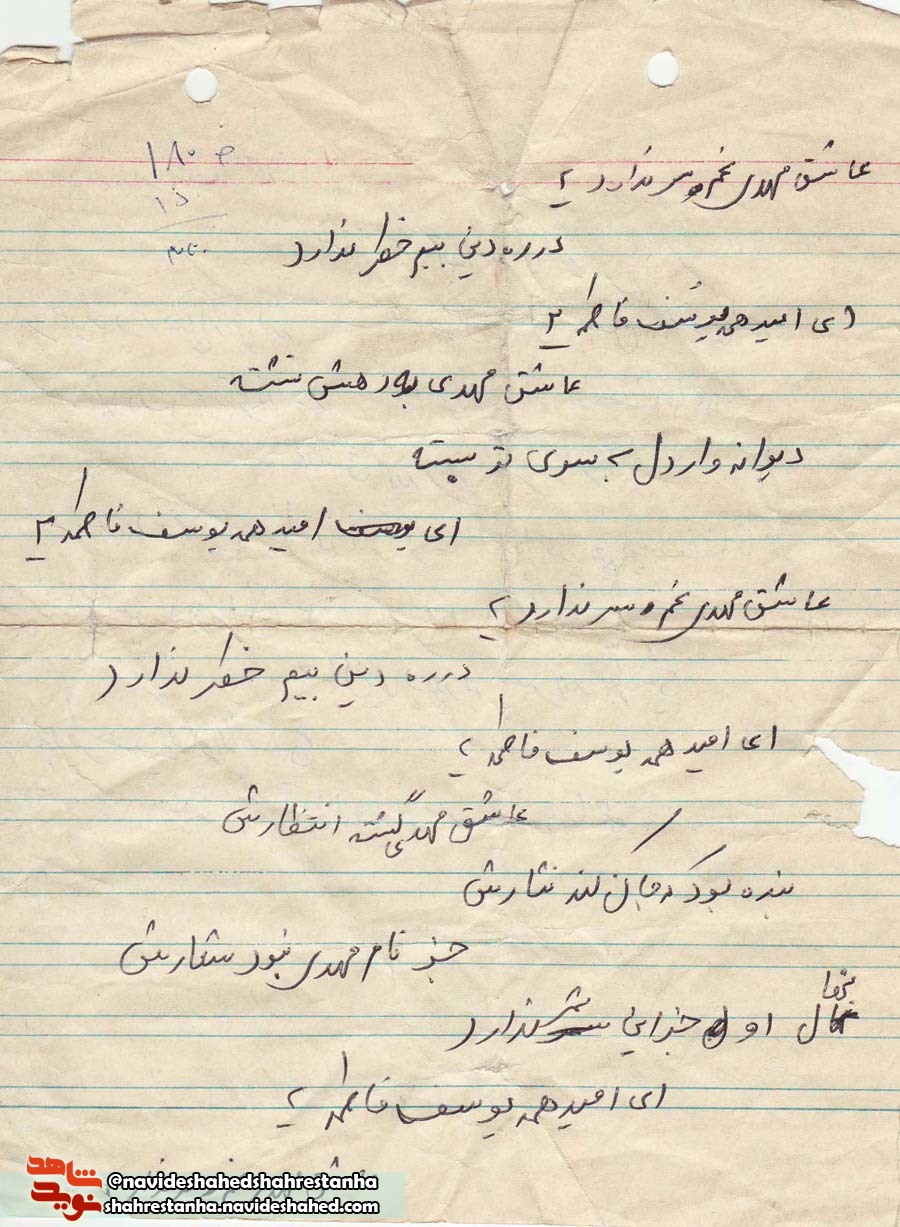 عاشق مهدی غم و سر ندارد ۲
۱۸۰ ص
۱۵
در ره دین بیم خطر ندارد
ای امید همه یوسف فاطمه ۲
عاشق مهدی به رهش نشسته
دیوانه وار دل به سوی تو بسته
ای یوسف امید همه یوسف فاطمه ۲
عاشق مهدی غم و سر ندارد ۲
در ره دین بیم خطر ندارد
ای امید همه یوسف فاطمه ۲
عاشق مهدی گشته انتظارش
بنده بود که جان کند نثارش
جز نام مهدی نبود شعارش
نخل او جز این ثمر ندارد
ای امید همه یوسف فاطمه ۲
نوید شاهد
@navideshahedshahrestanha
shahrestanha.navideshahed.com